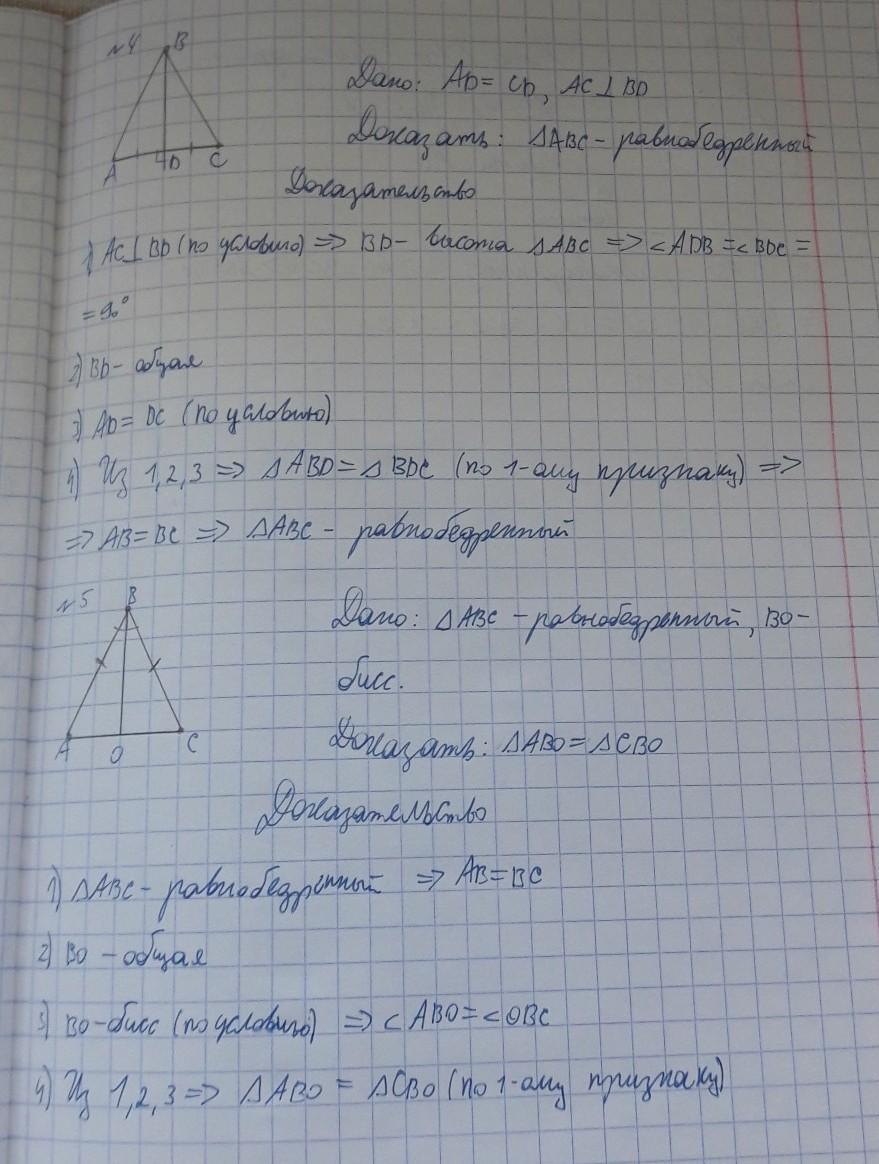 №4 B
Дано: AD = CD, AC ⊥ BD
Доказать: ΔABC - равнобедренный
A D C
Доказательство
1) AC ⊥ BD (по условию) => BD - высота ΔABC => ∠ADB = ∠BDC =
= 90°
2) BD - общая
3) AD = DC (по условию)
4) Из 1,2,3 => ΔABD = ΔBDC (по 1-ому признаку) =>
=> AB = BC => ΔABC - равнобедренный
№5 B
Дано: ΔABC - равнобедренный, BO -
бисс.
A O C
Доказать: ΔABO = ΔCBO
Доказательство
1) ΔABC - равнобедренный => AB = BC
2) BO - общая
3) BO - бисс (по условию) => ∠ABO = ∠OBC
4) Из 1,2,3 => ΔABO = ΔCBO (по 1-ому признаку)